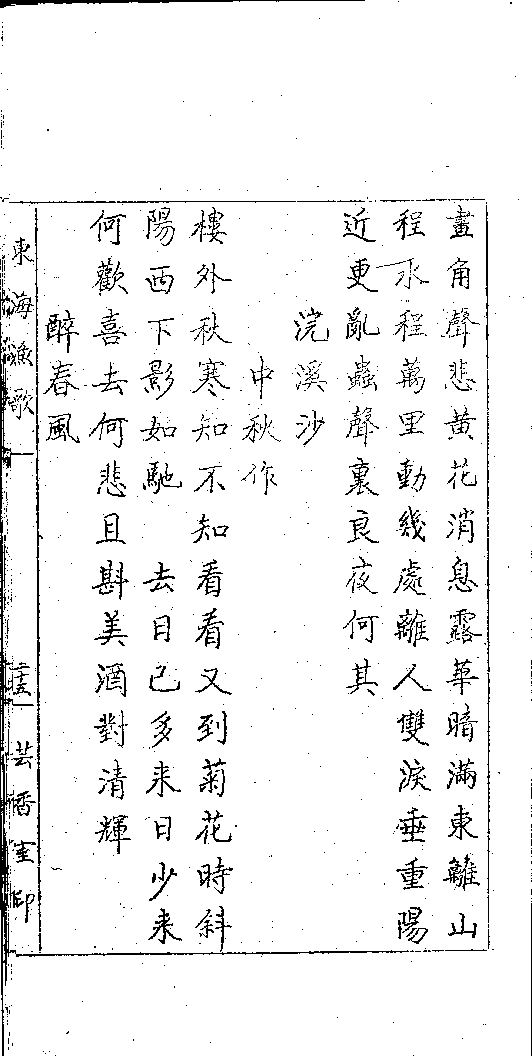 畫角聲悲黄花消息露華暗滿東離山
程水程萬里動幾處離人雙淚垂重陽
近更亂蟲聲裏良夜何其
浣溪沙
中秋作
樓外秋寒知不知看看又到菊花時斜
陽西下影如馳　去日已多来日少来
何歡喜去何悲且斟美酒對清輝
醉春風
東海漁歌
芸香室印